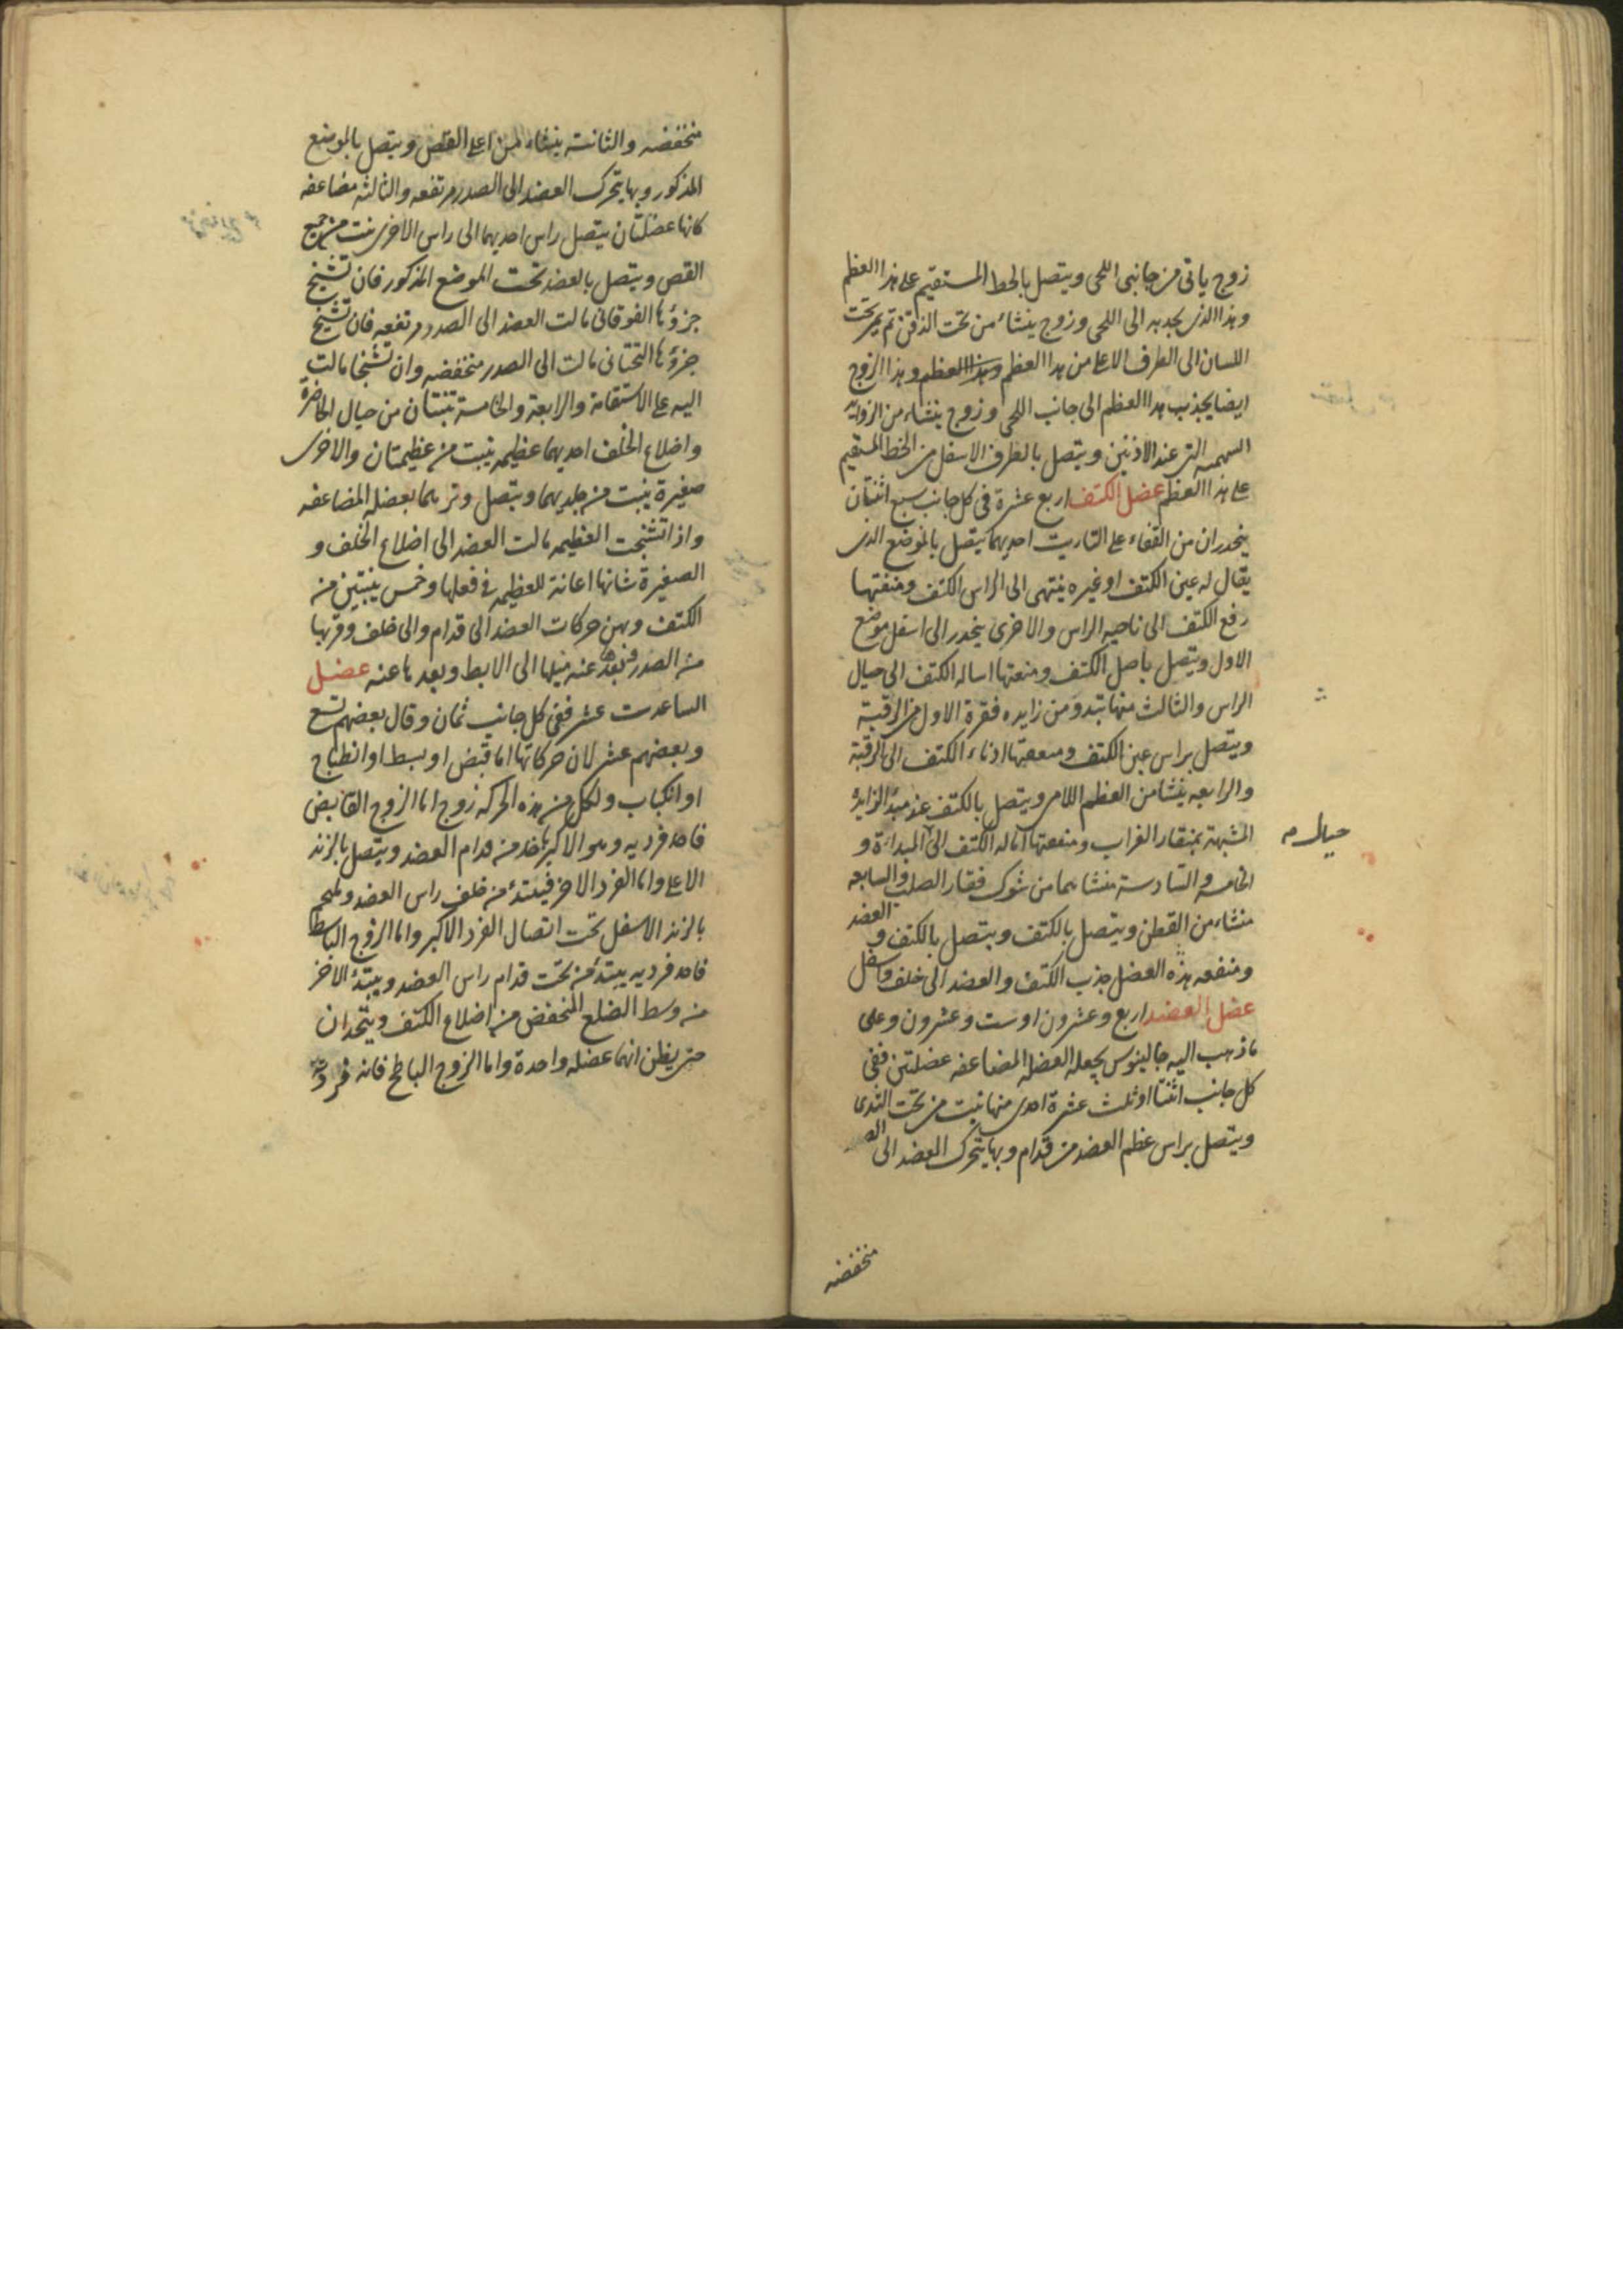 زوج ياتى من جانبى اللحى ويتصل بالخط المستقيم على هذا العظم
وهذا الذى يجذبه الى اللحى وزوج ينشاء من تحت الذقن ثم يمر تحت
اللسان الى الطرف الاعلى من هذا العظم وهذا العظم وهذا الزوج
ايضا يجذب هذا العظم الى جانب اللحى وزوج ينشاء من الزوايد
السهميه التى عند الاذنين ويتصل بالطرف الاسفل من الخط المستقيم
على هذا العظم عضل الكتف اربع عشرة فى كل جانب سبع اثنتان
ينحدران من القفاء على التاريب احديهما يتصل بالموضع الذى
يقال له عين الكتف او غيره ينتهى الى الراس الكتف ومنفعتها
رفع الكتف الى ناحيه الراس والاخرى ينحدر الى اسفل موضع
الاول ويتصل باصل الكتف ومنعتها اساله الكتف الى حيال
الراس والثالث منها تبتدو من زايده فقرة الاول من الرقبة
ويتصل براس عين الكتف ومنفعتها ادناء الكتف الى الرقبة
والرابعه ينشا من العظم اللامى ويتصل بالكتف عند مبدأ الزايدة
المشبهة بمنقار الغراب ومنفعتها اماله الكتف الى المبداءة و
حيال م
الخامسه والسادسة منشاهما من شوك فقار الصلب والسابعه
منشاء من القطن ويتصل بالكتف ويتصل بالكتف و العضد
ومنفعه هذه العضل جذب الكتف والعضد الى خلف واسفل
عضل العضد اربع وعشرون او ست وعشرون وعلى
ما ذهب اليه جالينوس يجعله العضله المضاعفه عضلتين ففى
كل جانب اثنتا او ثلث عشرة احدى منها تنبت من تحت الثدى
ويتصل براس عظم العضد من قدام وبها يتحرك العضد الى
منخفضه
منخفضه والثانية ينشاء من اعلى القص ويتصل بالموضع
المذكور وبها يتحرك العضد الى الصدر مرتفعه والثالثه مضاعفه
كانها عضلتان يتصل راس احديهما الى راس الاخرى تنبت من جميع
القص ويتصل بالعضد تحت الموضع المذكور فان تشنج
جزؤها الفوقانى مالت العضد الى الصدر مرتفعه فان تشنج
جزؤها التحتانى مالت الى الصدر منخفضه وان تشنجا مالت
اليه على الاستقامة والرابعة والخامسة تنبتان من حيال الخاصرة
واضلاع الخلف احديهما عظيمه ينبت من عظيمتان والاخرى
صغيرة ينبت من جلديهما ويتصل وترهما بعضله المضاعفه
واذا تشنجت العظيمه مالت العضد الى اضلاع الخلف و
الصغيرة شانها اعانة للعظيمه فى فعلها وخمس ينبتين من
الكتف وبهن حركات العضد الى قدام والى خلف وقربها
من الصدر وبعدها عنه ميلها الى الابط وبعدها عنه عضل
الساعد ست عشر ففى كل جانب ثمان وقال بعضهم تسع
وبعضهم عشر لان حركاتها اما قبض او بسط او انطباح
او انكباب ولكل من هذه الحركه زوج اما الزوج القابض
فاحد فرديه وهو الاكبر ياخذ من قدام العضد ويتصل بالزند
الاعلى واما الفرد الاخر فيبتدء من خلف راس العضد ويلتحم
بالزند الاسفل تحت اتصال الفرد الاكبر واما الزوج الباسط
فاحد فرديه يبتدء من تحت قدام راس العضد ويبتدء الاخر
من وسط الضلع المنخفض من اضلاع الكتف ويتحدان
حتى يظن انهما عضله واحدة واما الزوج الباطح فانه